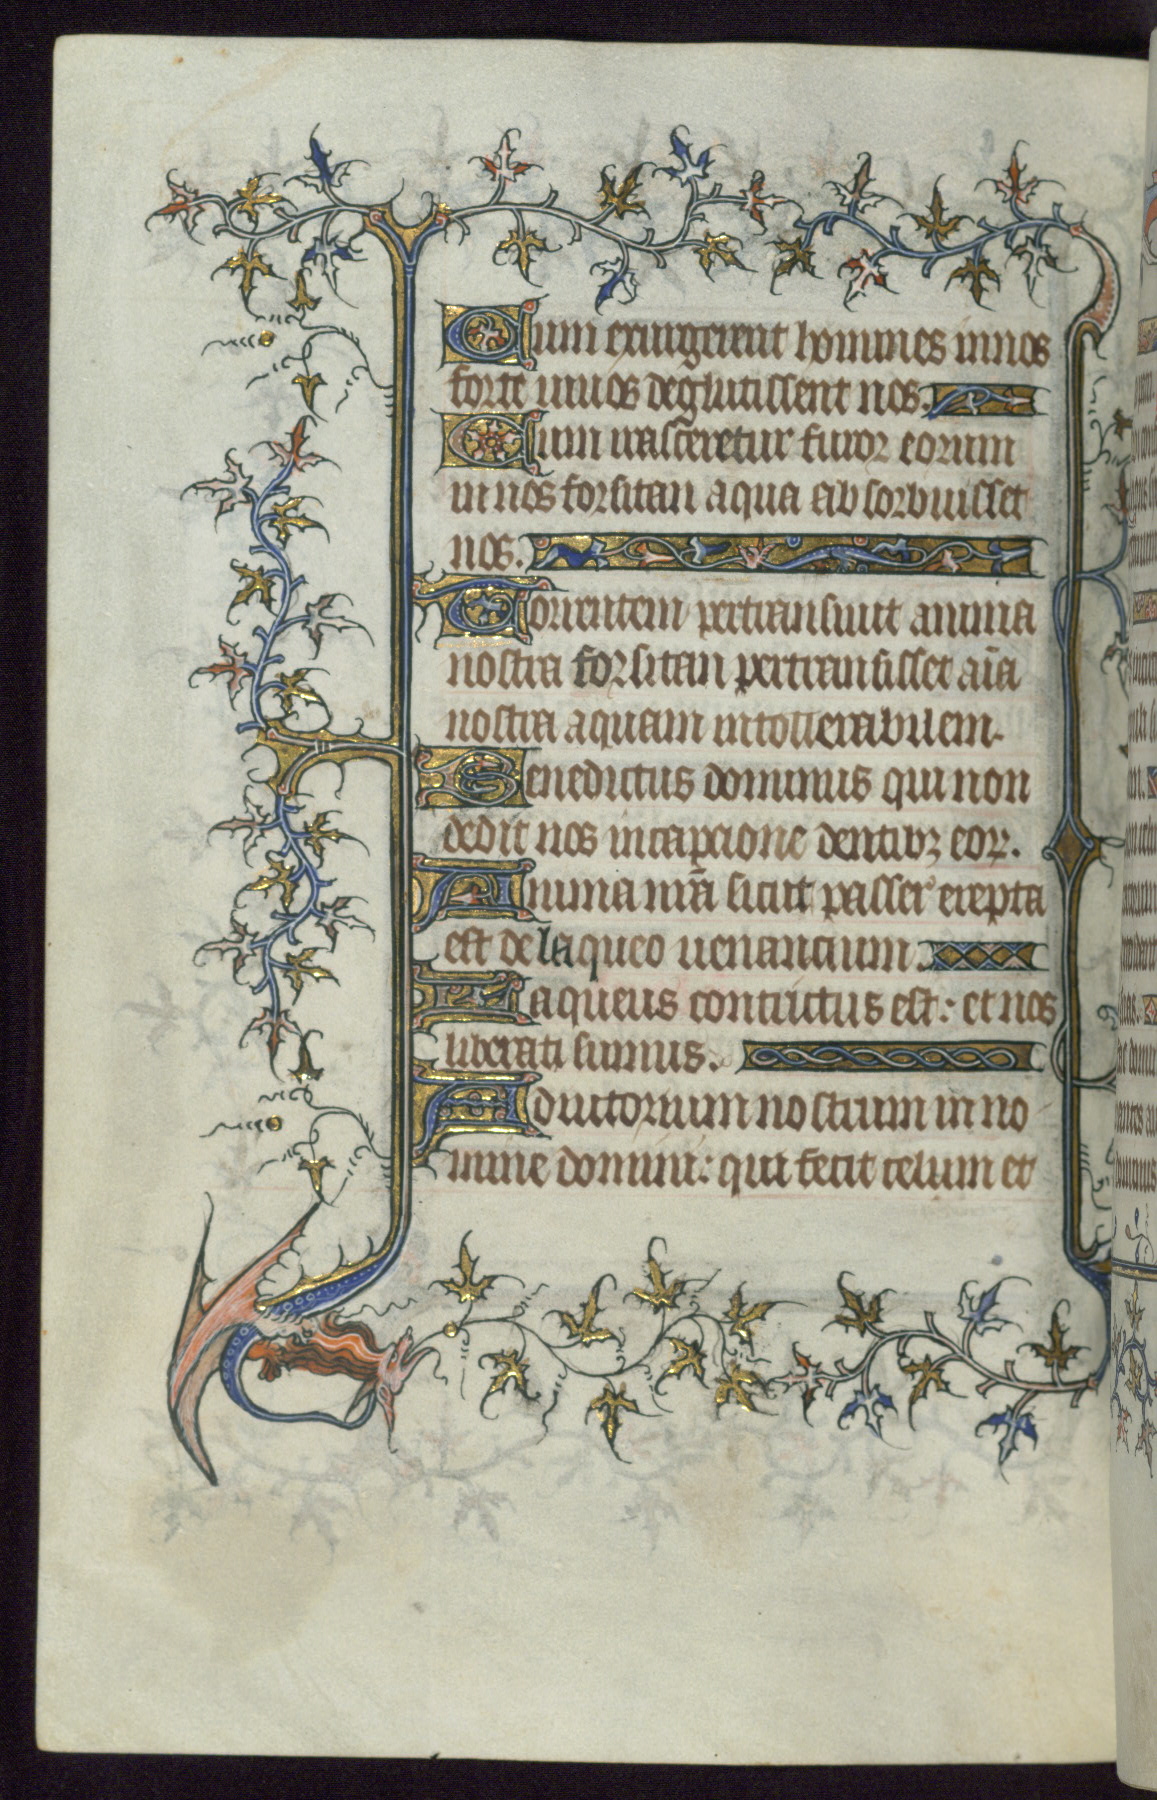 Cum exurgerent homines in nos
forte uiuos deglutissent nos.
Cum irasceretur furor eorum
in nos forsitan aqua absorbuisset
nos.
Torrentem pertransiuit anima
nostra forsitan pertransisset aīa
nostra aquam intollerabilem.
Benedictus dominus qui non
dedit nos in capcione dentibꝫ eoꝝ.
Anima nrā sicut passer erepta
est de laqueo uenancium.
Laqueus contritus est: et nos
liberati sumus.
Adiutorium nostrum in no
mine domini: qui fecit celum et